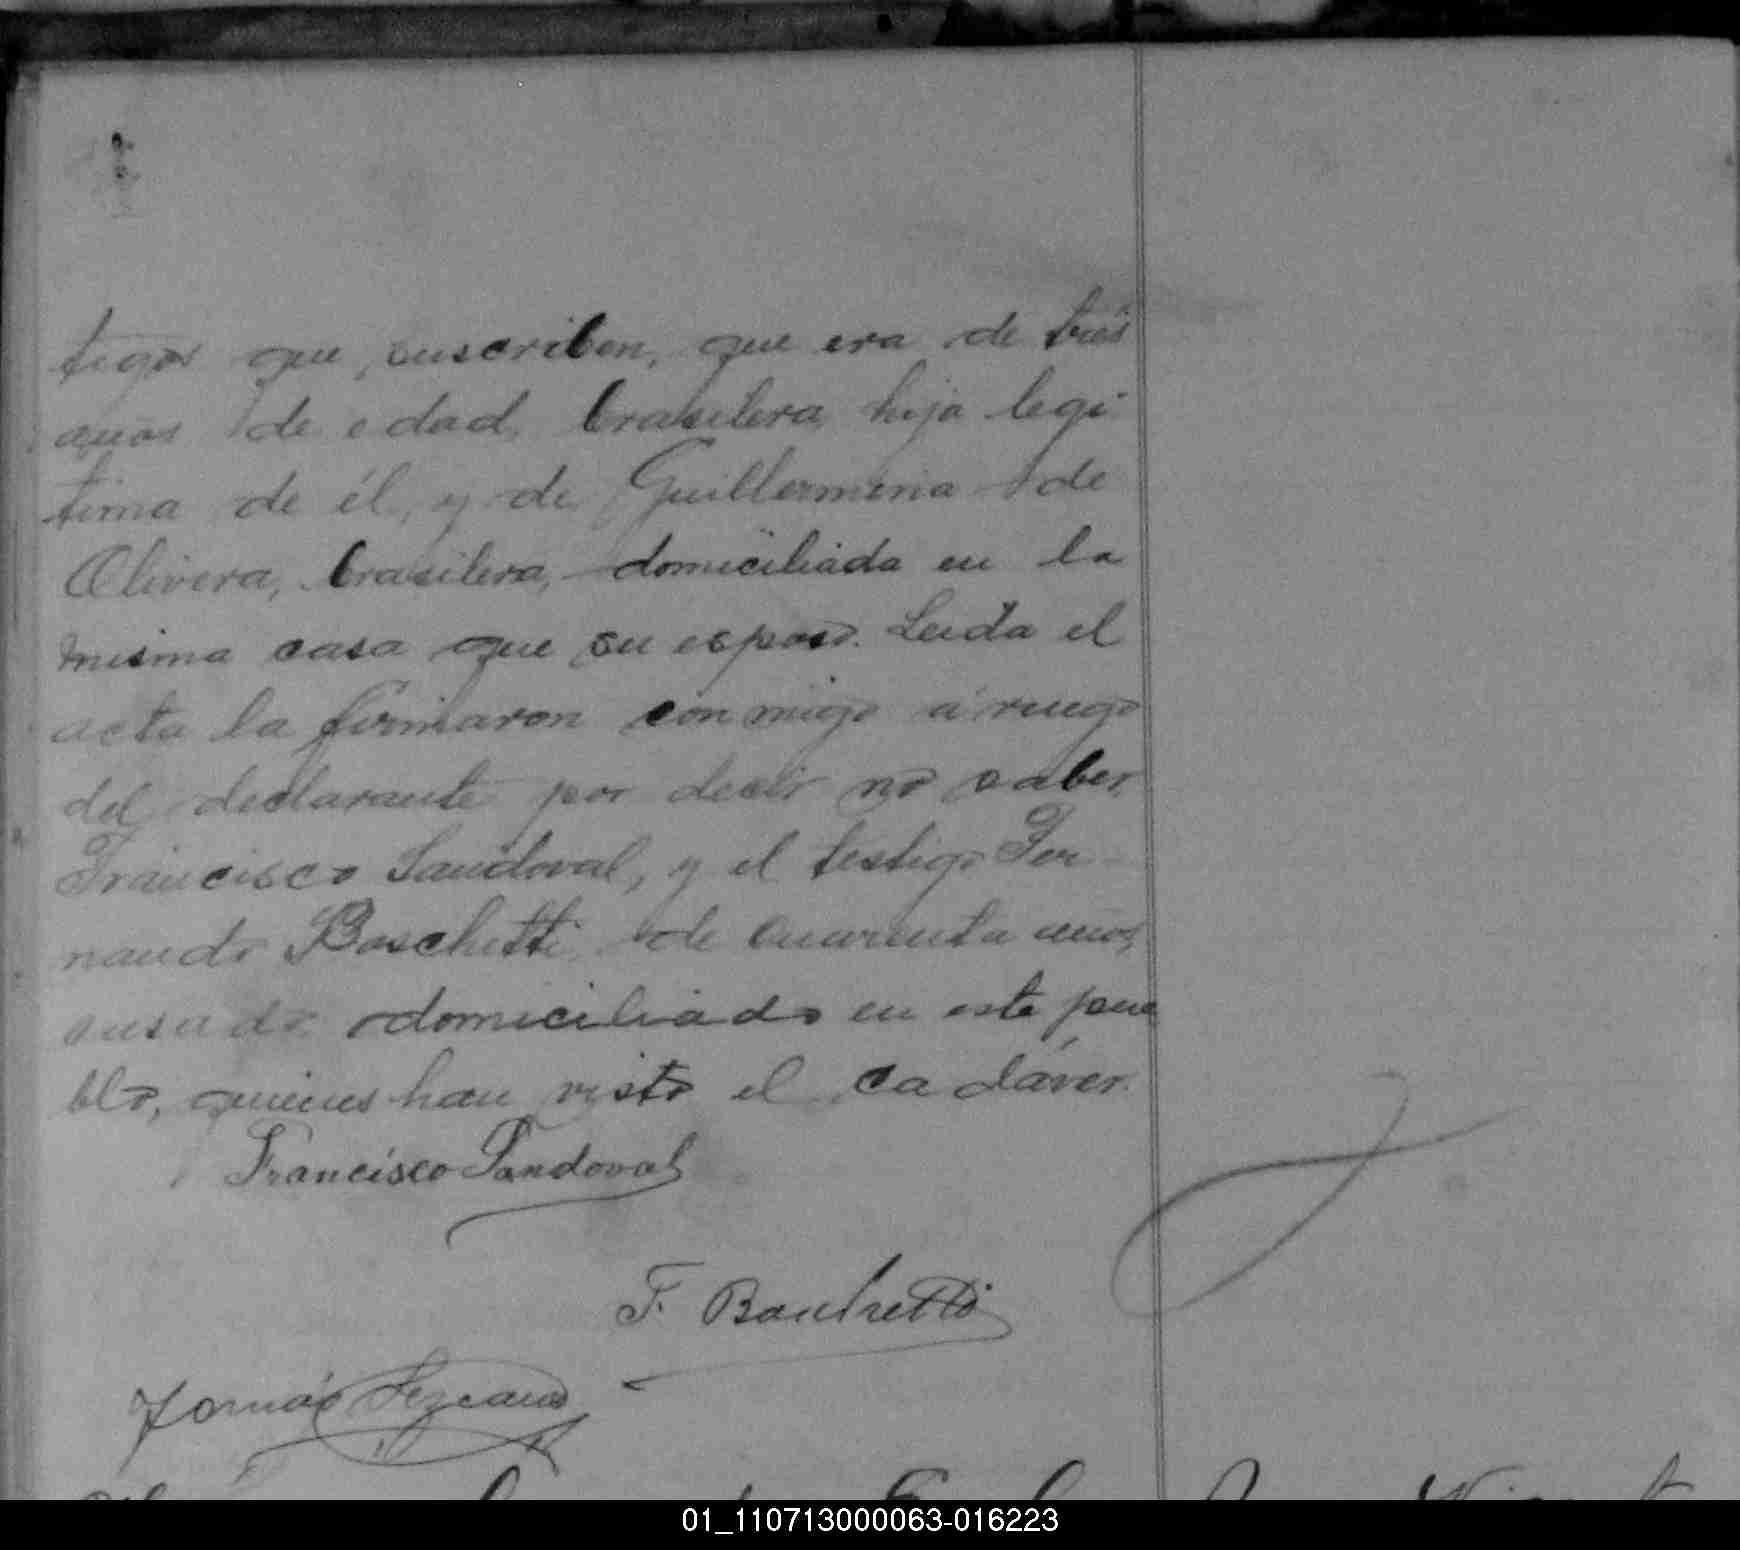 tigos que suscriben, que era de tres
años de edad, brasilera, hija legi-
tima de él, y de Guillermina de
Olivera, brasilera, domiciliada en la
misma casa que su esposo. Leida el
acta la firmaron conmigo á ruego
del declarante por decir no saber,
Francisco Sandoval, y el testigo Fer-
nando Boschetti, de cuarenta años,
casado domiciliado en este pue
blo, quienes han visto el cadáver.
Francisco Sandoval
F. Boschetti
Tomás Lezcano
01_110713000063-016223